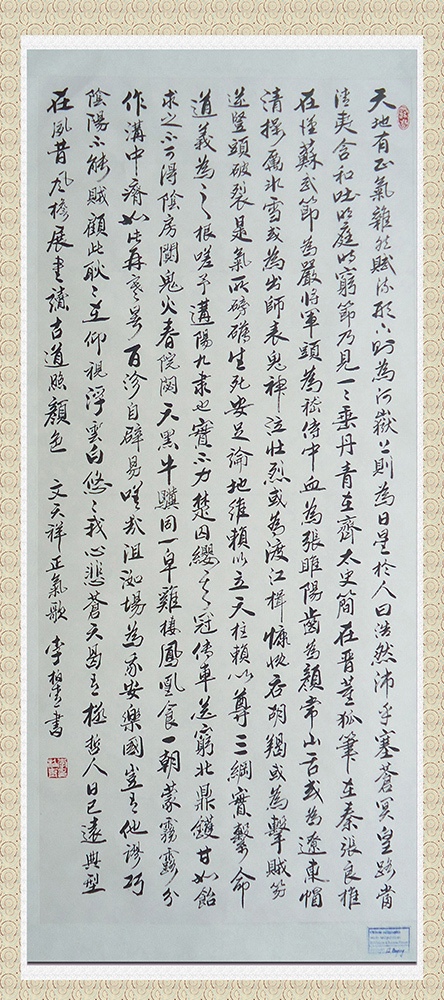 天地有正氣雜然賦流形下則為河嶽上則為日星於人曰浩然沛乎塞蒼冥皇路當
清夷含和吐明庭時窮節乃見一一垂丹青在齊太史簡在晉董狐筆在秦張良椎
在漢蘇武節為嚴將軍頭為嵇侍中血為張睢陽齒為顏常山舌或為遼東帽
清操厲冰雪或為出師表鬼神泣壯烈或為渡江楫慷慨吞胡羯或為擊賊笏
逆豎頭破裂是氣所磅礡生死安足論地維賴以立天柱賴以尊三綱實繫命
道義為之根嗟予遘陽九隸也實不力楚囚纓其冠傳車送窮北鼎鑊甘如飴
求之不可得陰房闃鬼火春院閟天黑牛驥同一皁雞棲鳳凰食一朝蒙霧露分
作溝中瘠如此再寒暑百沴自辟易嗟哉沮洳場為我安樂國豈有他謬巧
陰陽不能賊顧此耿耿在仰視浮雲白悠悠我心悲蒼天曷有極哲人日已遠典型
在夙昔風檐展書讀古道照顏色 文天祥正氣歌 李柏書